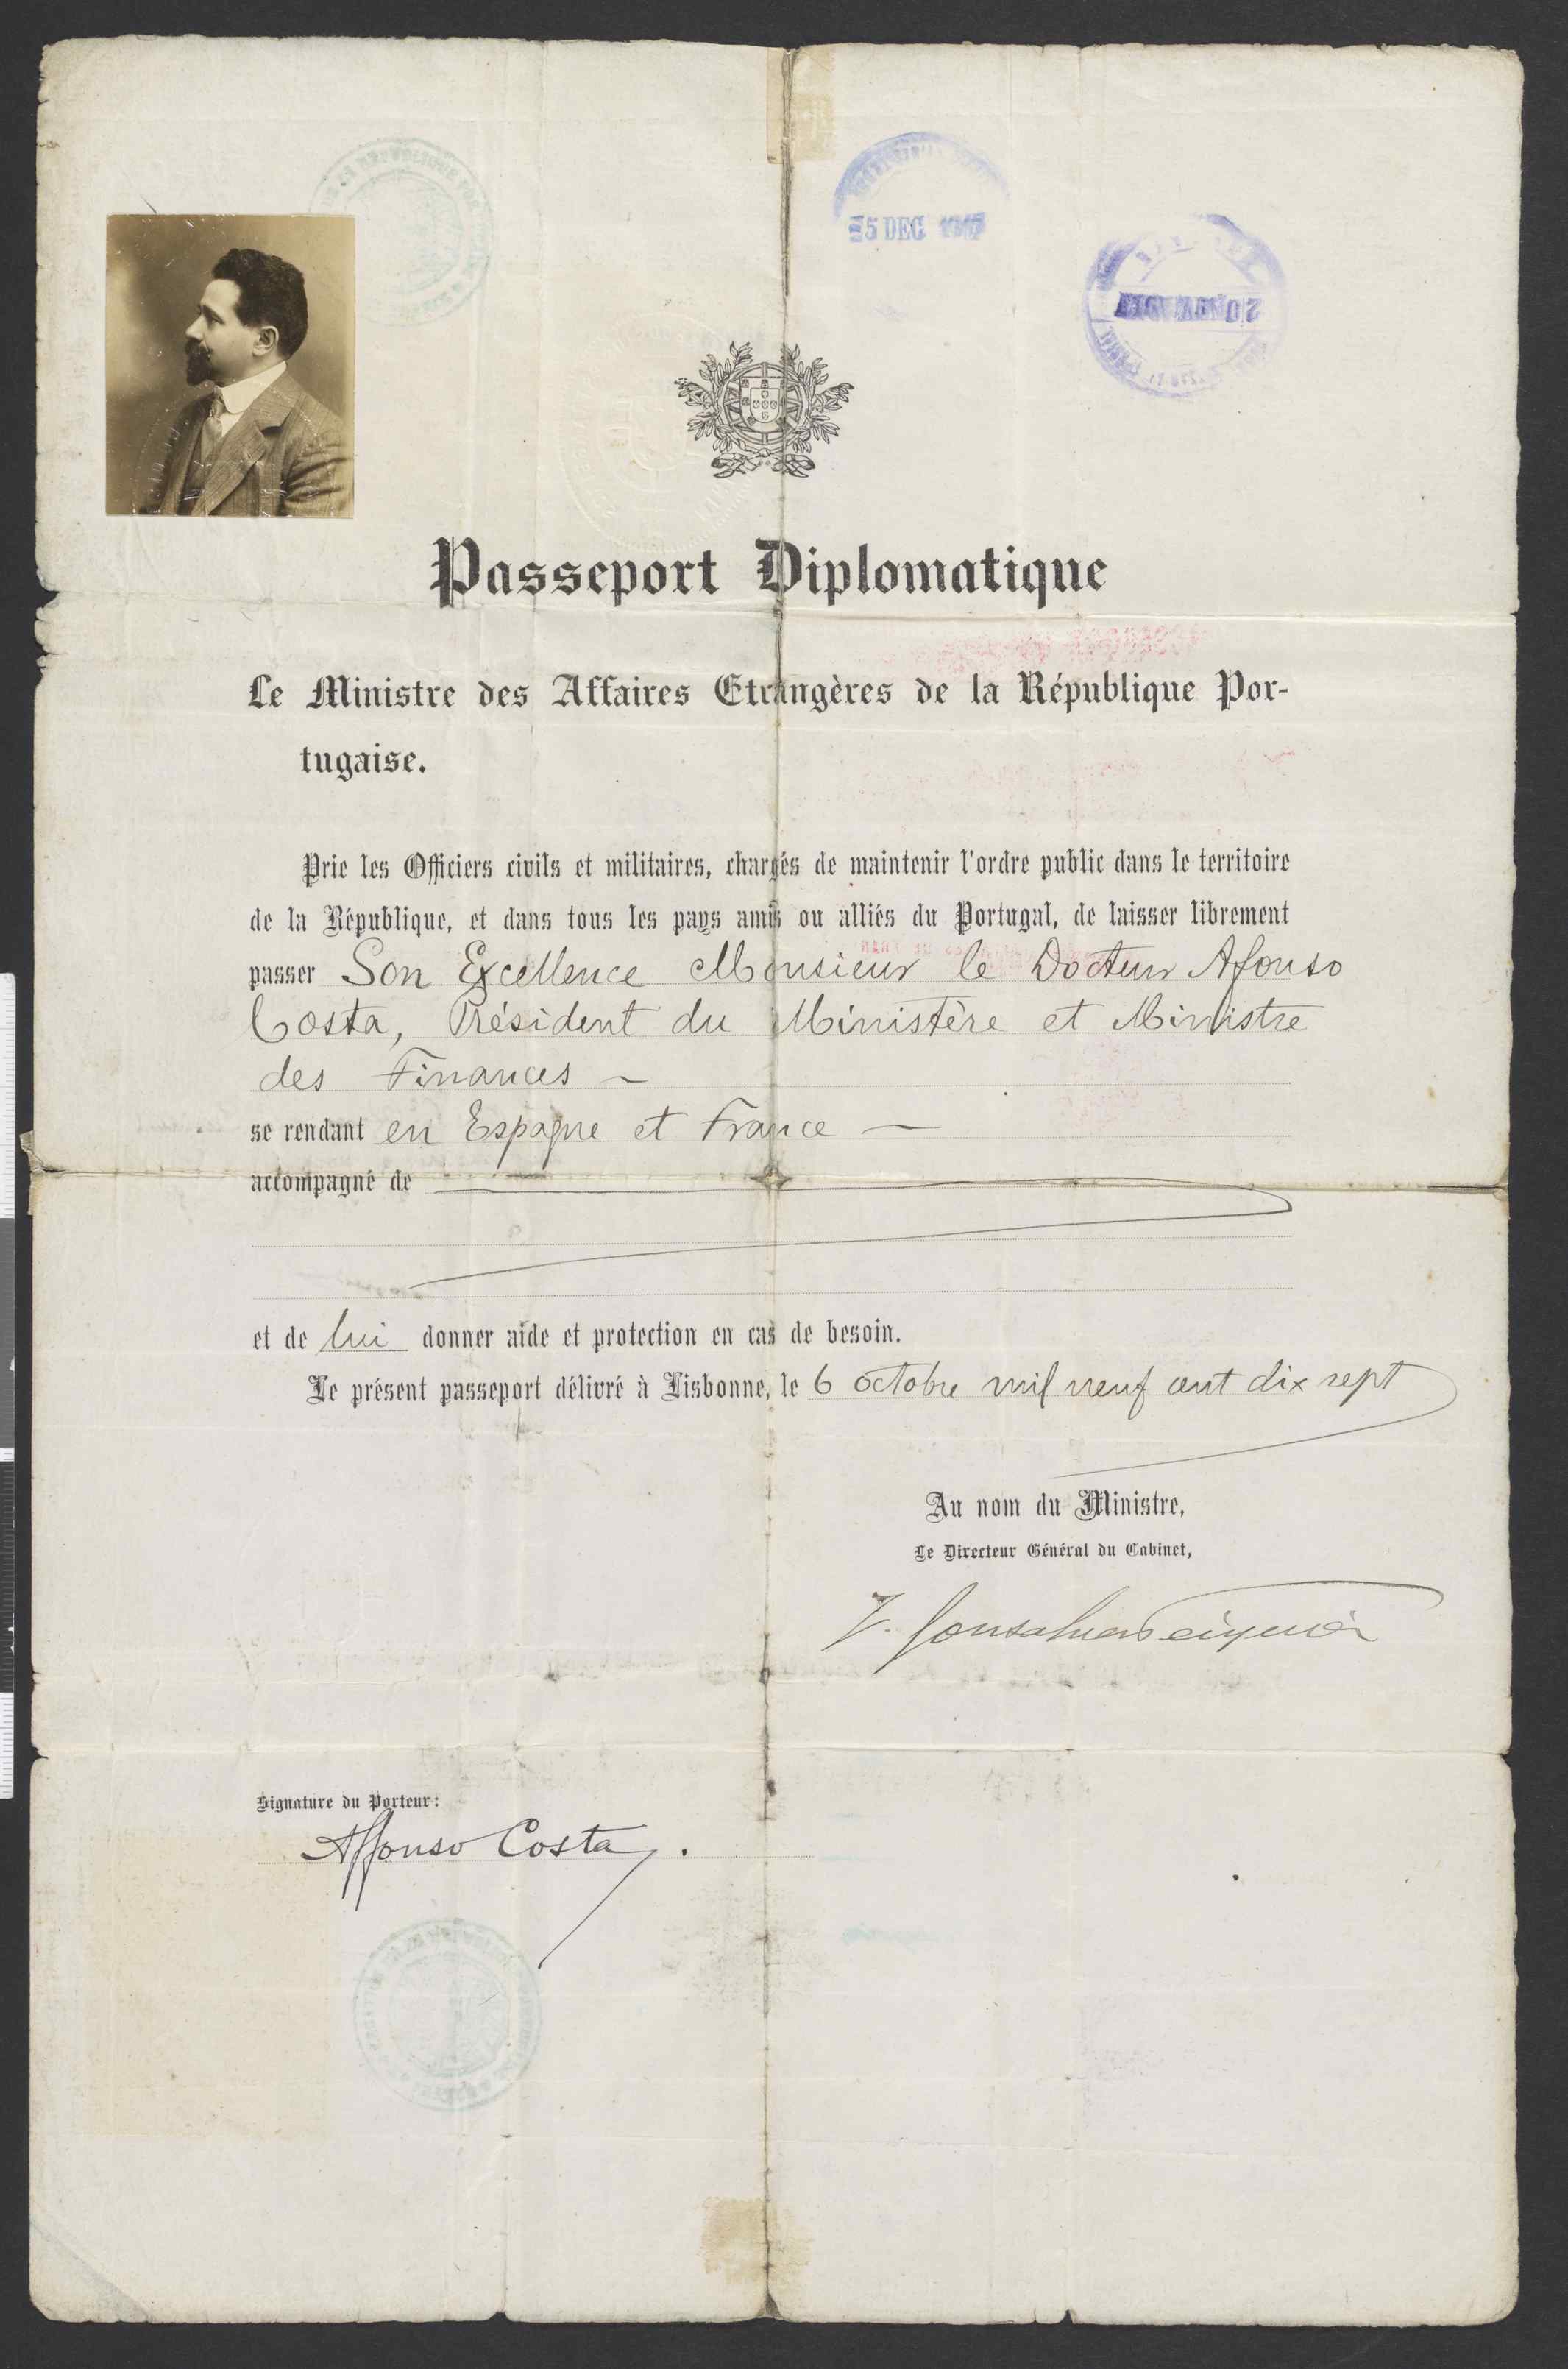 5 DEC 1917
Passeport Diplomatique
Le Ministre des Affaires Etrangères de la République Por-
tugaise.
Prie les Officiers civils et militaires, chargés de maintenir l'ordre public dans le territoire
de la République, et dans tous les pays amis ou alliés du Portugal, de laisser librement
passer Son Excellence Monsieur le Docteur Afonso
Costa, Président du Ministère et Ministre
des Finances —
se rendant en Espagne et France —
accompagné de
et de lui donner aide et protection en cas de besoin.
Le présent passeport délivré à Lisbonne, le 6 octobre mil neuf cent dix sept
Au nom du Ministre,
Le Directeur Général du Cabinet,
Signature du Porteur:
Affonso Costa.